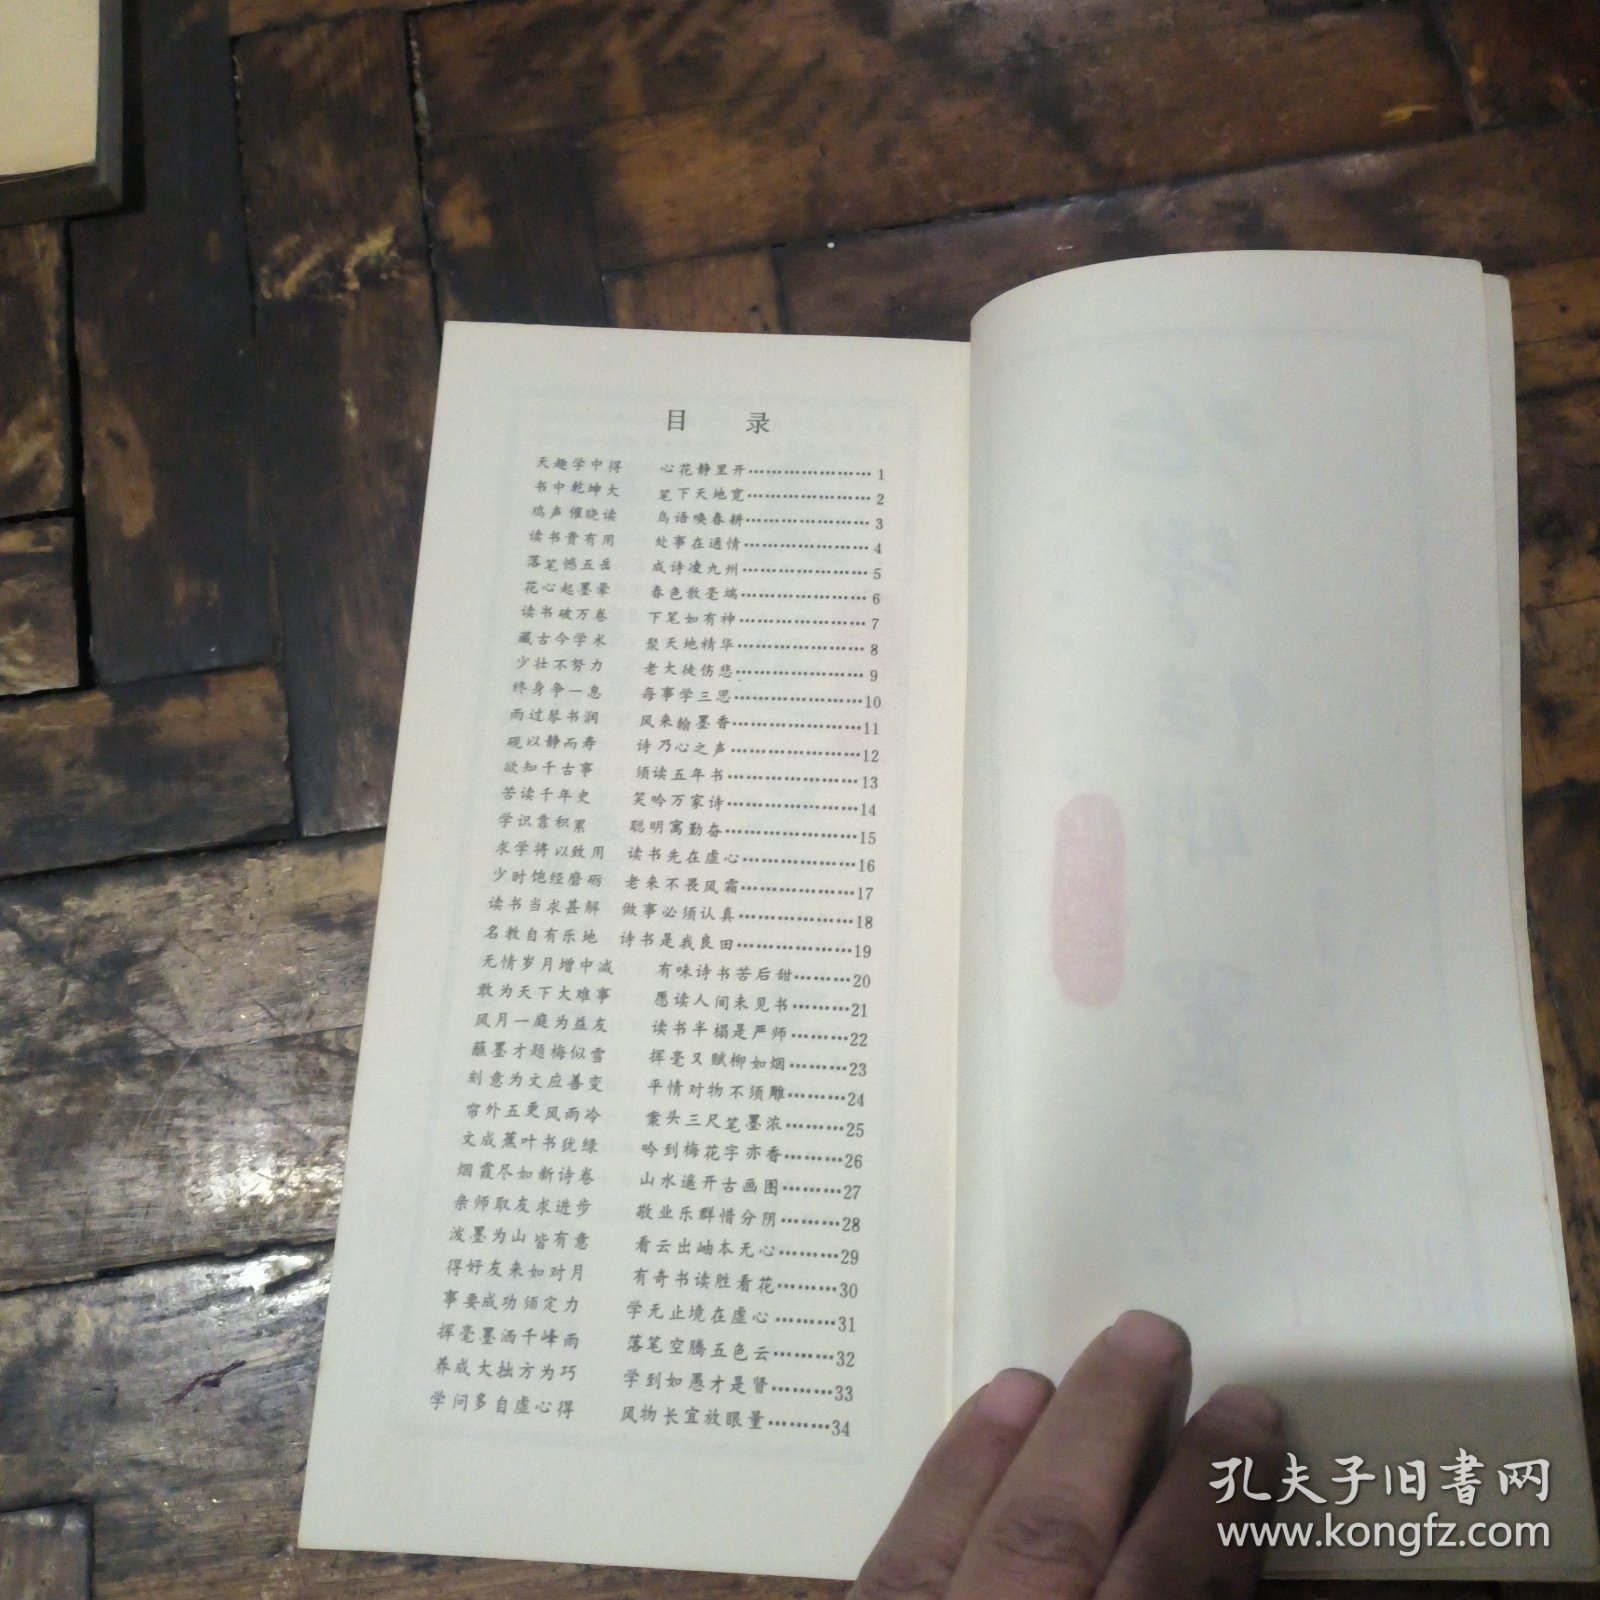 目 录
天趣学中得 心花静里开……………………1
书中乾坤大 笔下天地宽……………………2
鸡声催晓读 鸟语唤春耕……………………3
读书贵有用 处事在通情……………………4
落笔憾五岳 成诗凌九州……………………5
花心起墨晕 春色散毫端……………………6
读书破万卷 下笔如有神……………………7
藏古今学术 聚天地精华……………………8
少壮不努力 老大徒伤悲……………………9
终身争一息 每事学三思……………………10
雨过琴书润 风来翰墨香……………………11
砚以静而寿 诗乃心之声……………………12
欲知千古事 须读五年书……………………13
苦读千年史 笑吟万家诗……………………14
学识靠积累 聪明寓勤奋……………………15
求学将以致用 读书先在虚心…………………16
少时饱经磨砺 老来不畏风霜…………………17
读书当求甚解 做事必须认真…………………18
名教自有乐地 诗书是我良田…………………19
无情岁月增中减 有味诗书苦后甜………20
敢为天下大难事 愿读人间未见书………21
风月一庭为益友 读书半榻是严师………22
蘸墨才题梅似雪 挥毫又赋柳如烟………23
刻意为文应善变 平情对物不须雕………24
帘外五更风雨冷 案头三尺笔墨浓………25
文成蕉叶书犹绿 吟到梅花字亦香………26
烟霞尽如新诗卷 山水遥开古画图………27
亲师取友求进步 敬业乐群惜分阴………28
泼墨为山皆有意 看云出岫本无心………29
得好友来如对月 有奇书读胜看花………30
事要成功须定力 学无止境在虚心………31
挥毫墨洒千峰雨 落笔空腾五色云………32
养成大拙方为巧 学到如愚才是贤………33
学问多自虚心得 风物长宜放眼量………34
孔夫子旧书网
www.kongfz.com